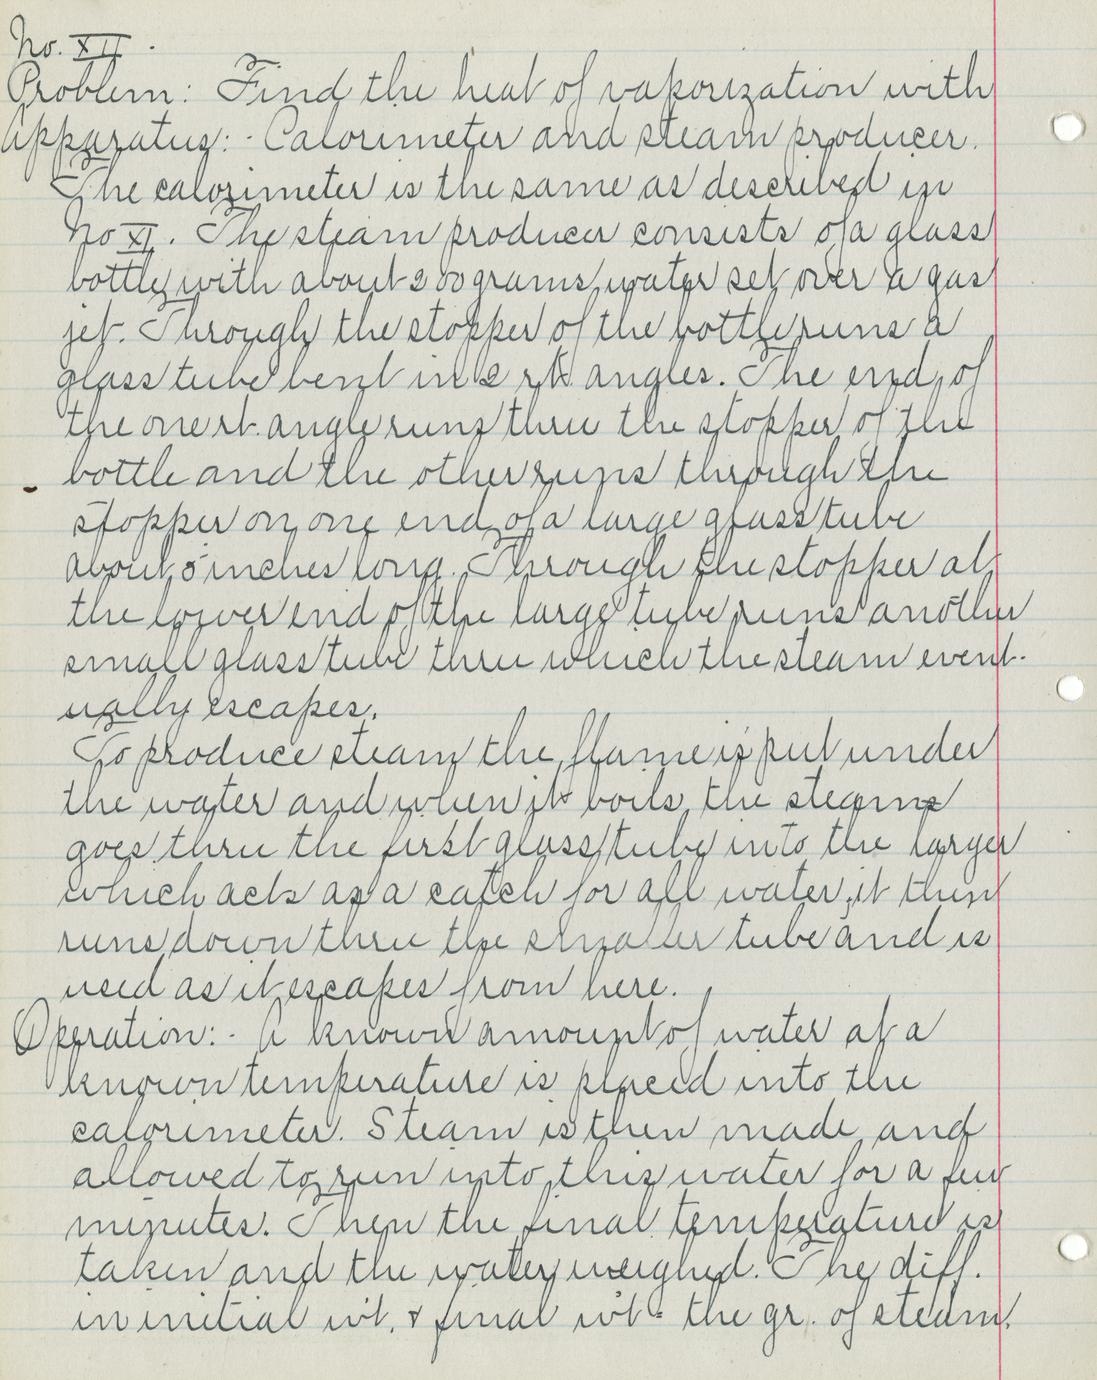 No. XII.
Problem: Find the heat of vaporization with
Apparatus:- Calorimeter and steam producer.
The calorimeter is the same as described in
No XI. The steam producer consists of a glass
bottle with about 200 grams water set over a gas
jet. Through the stopper of the bottle runs a
glass tube bent in 2 rt angles. The end of
the one rt. angle runs thru the stopper of the
bottle and the other runs through the
stopper on one end of a large glass tube
about 5 inches long. Through the stopper at
the lower end of the large tube runs another
small glass tube thru which the steam event-
ually escapes.
To produce steam the flame is put under
the water and when it boils, the steam
goes thru the first glass tube into the larger
which acts as a catch for all water, it then
runs down thru the smaller tube and is
used as it escapes from here.
Operation:- A known amount of water at a
known temperature is placed into the
calorimeter. Steam is then made and
allowed to run into this water for a few
minutes. Then the final temperature is
taken and the water weighed. The diff.
in initial wt. & final wt = the gr. of steam.